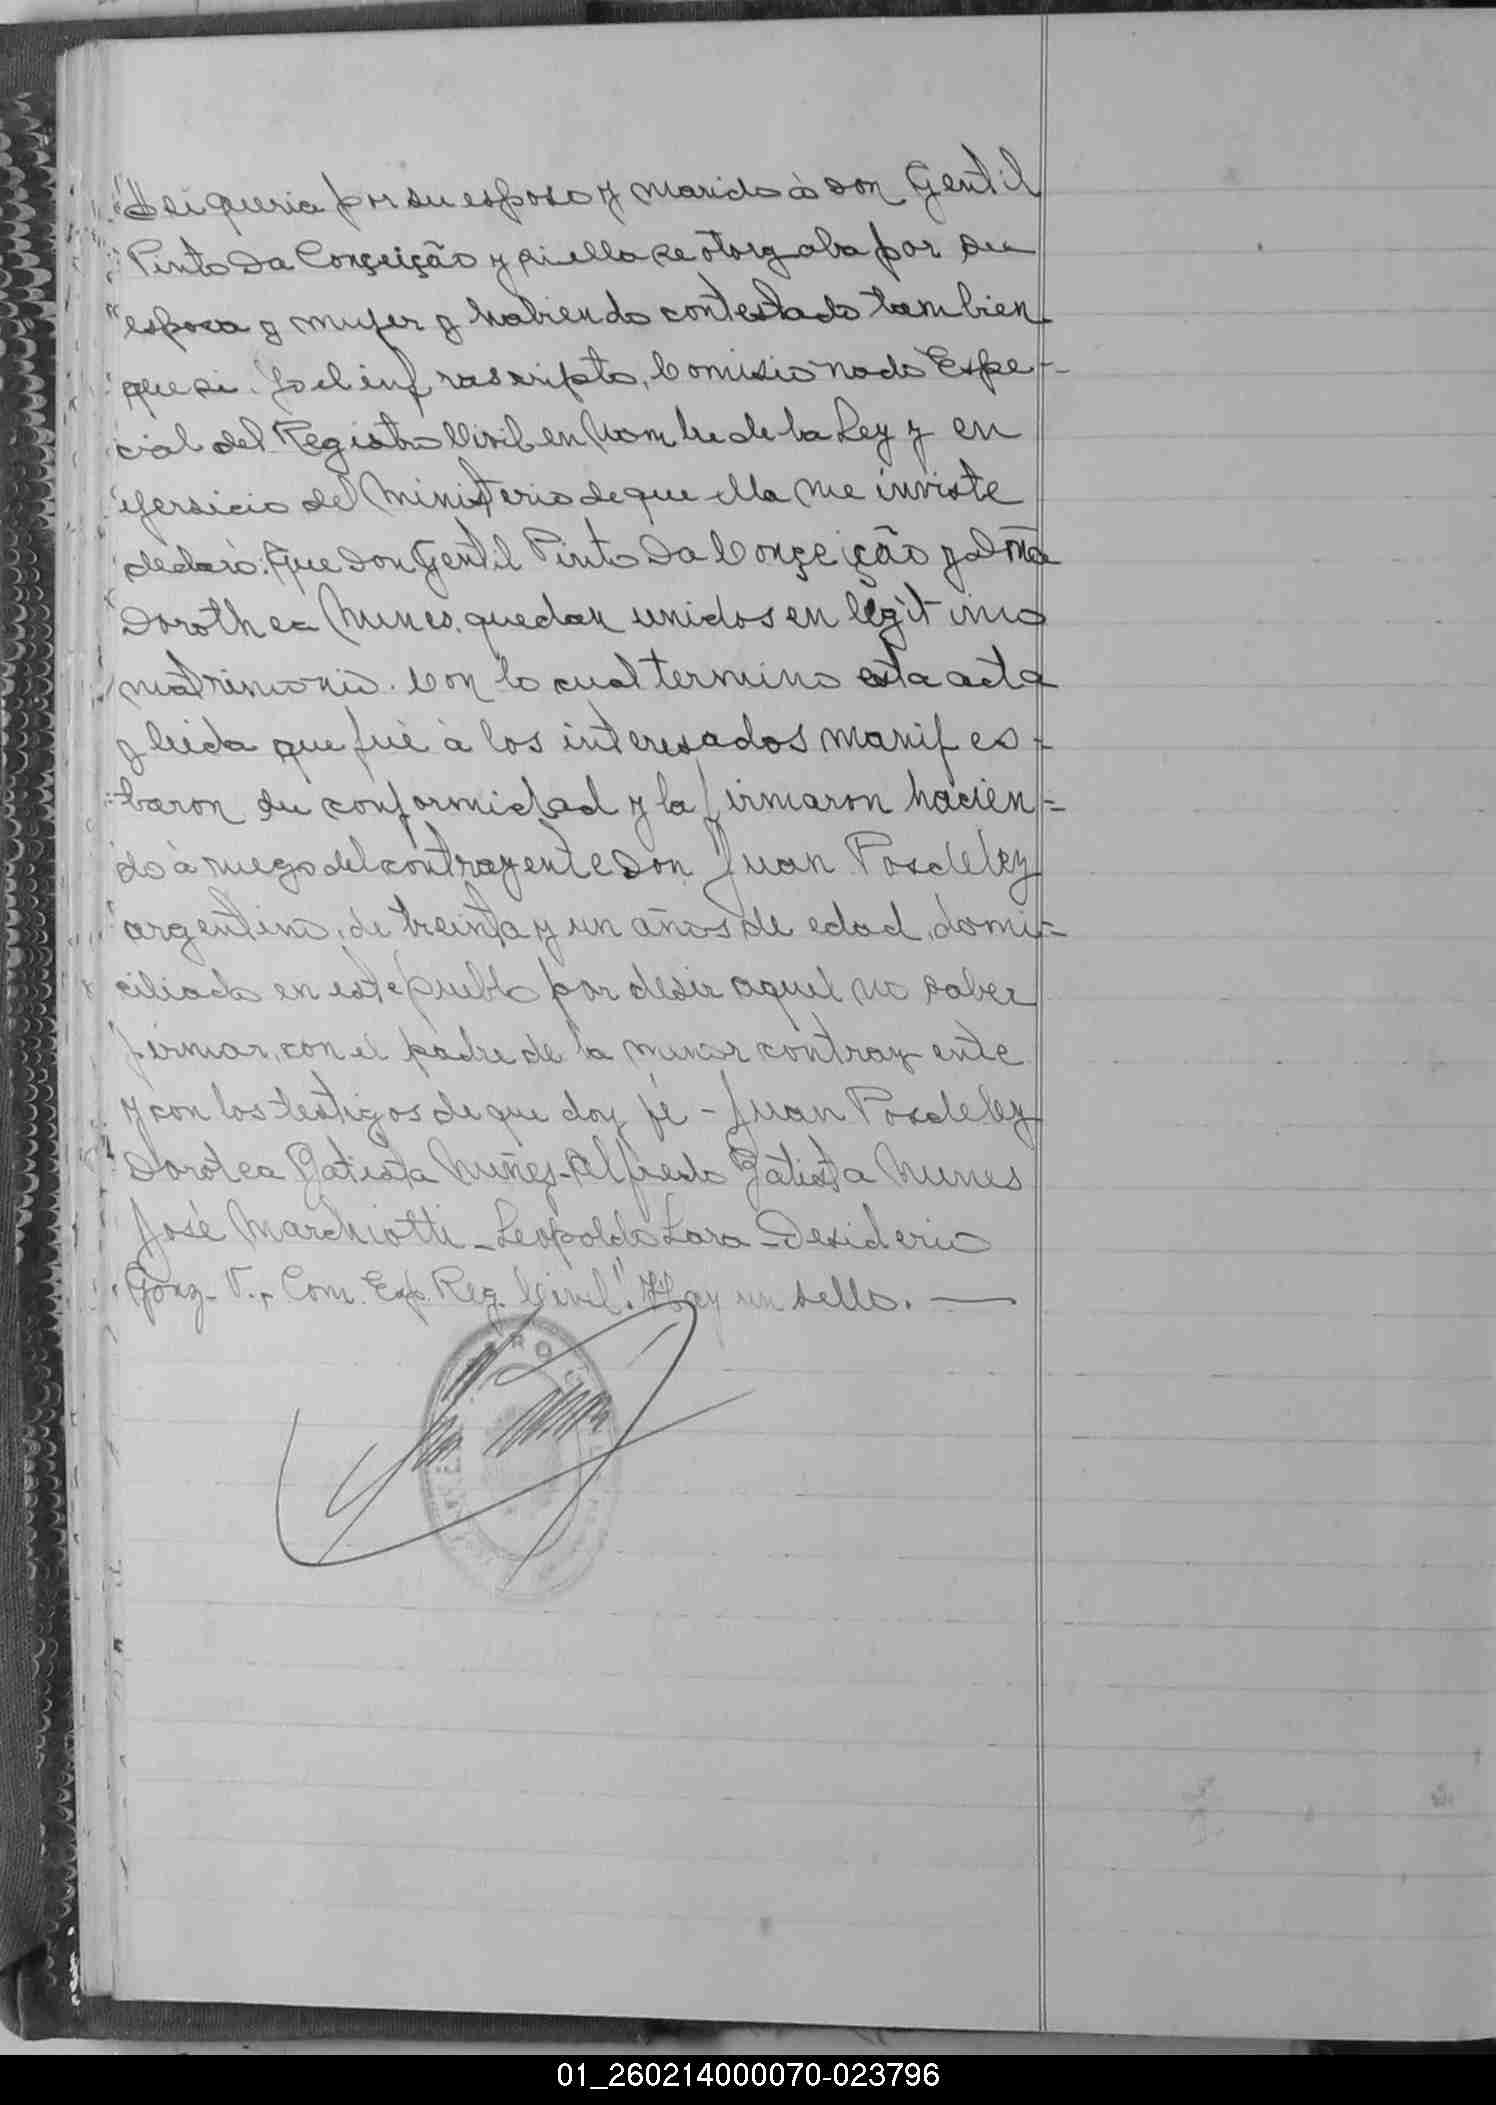 "si queria por su esposo y marido à don Gentil
Pinto Da Conçeição y si ella se otorgaba por su
"esposa y mujer y habiendo contestado tambien
que si. Yo el infrascripto, Comisionado Espe-
cial del Registro Civil en Nombre de la Ley y en
ejersicio del Ministerio de que ella me inviste
declaro: Que don Gentil Pinto Da Conçeição y doña
Dorothea Nunes, quedan unidos en legitimo
matrimonio. Con lo cual termino esta acta
y leida que fué à los interesados manifes-
taron su conformidad y la firmaron hacien=
do à ruego del contrayente don Juan Posdeley
argentino, de treinta y un años de edad, domi=
ciliado en este pueblo por desir aquel no saber
firmar, con el padre de la menor contrayente
y con los testigos de que doy fé - Juan Posdeley
Dorotea Batista Nuñez - Alfredo Batista Nunes
José Marchiotti - Leopoldo Lara - Desiderio
Gonz. V., Com. Esp. Reg. Civil". Hay un sello. —
01_260214000070-023796